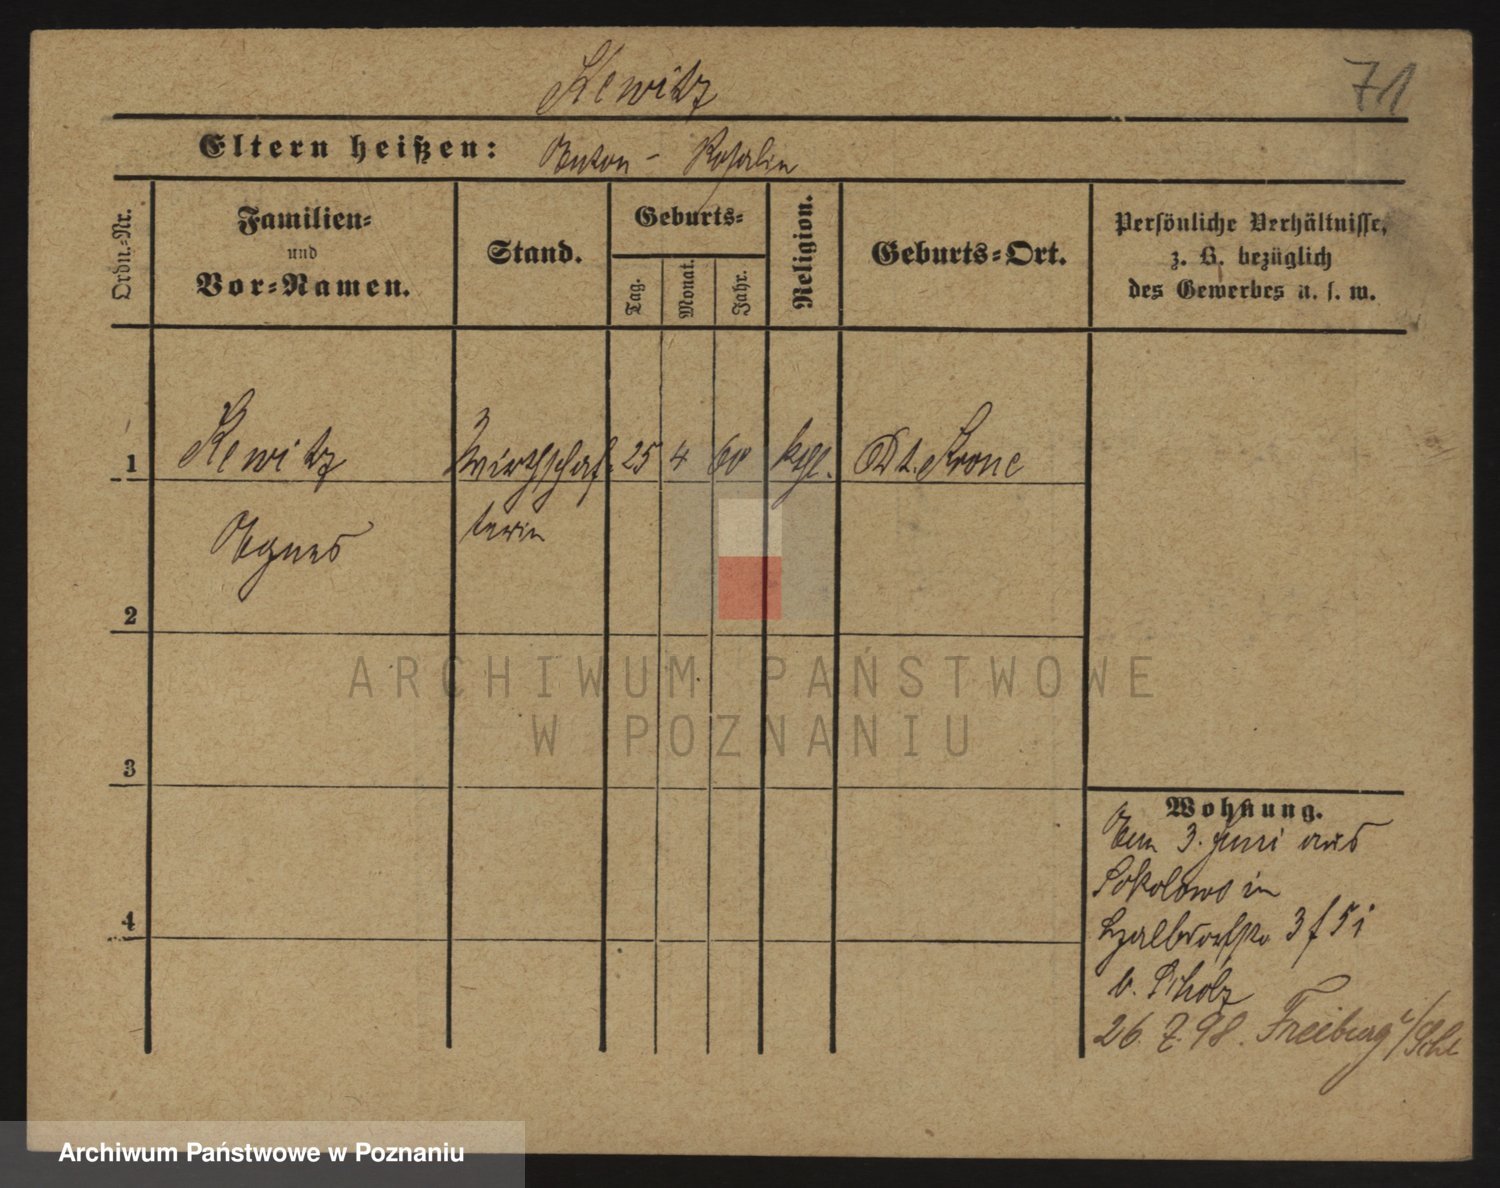 Kewitz
71
Eltern heißen: Anton - Rosalie
Ordn.-Nr.
Familien-
und
Vor-Namen.
Stand.
Geburts-
Tag.
Monat.
Jahr.
Religion.
Geburts-Ort.
Persönliche Verhältnisse,
z. B. bezüglich
des Gewerbes u. s. w.
1 Kewitz Wirthschaf- 25 4 60 kth. Dt. Krone
Agnes terin
2
3
4
Wohnung.
Am 3. Juni aus
Sokolowo in
3 f 5 i
b. Scholz
26. 7. 98. Freiburg i/Schl
ARCHIWUM PAŃSTWOWE
W POZNANIU
Archiwum Państwowe w Poznaniu